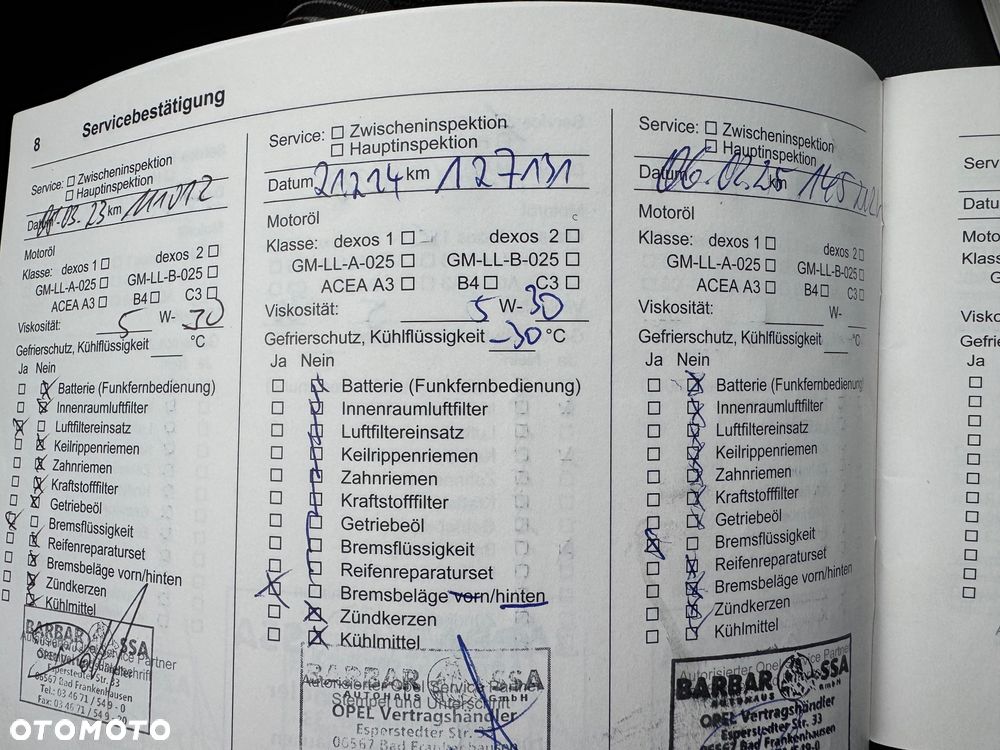 8
Servicebestätigung
Service: Zwischeninspektion
Hauptinspektion
Datum .03.23 km 111012
Motoröl
Klasse: dexos 1 dexos 2
GM-LL-A-025 GM-LL-B-025
ACEA A3 B4 C3
Viskosität: 5 W- 30
Gefrierschutz, Kühlflüssigkeit °C
Ja Nein
Batterie (Funkfernbedienung)
Innenraumluftfilter
Luftfiltereinsatz
Keilrippenriemen
Zahnriemen
Kraftstofffilter
Getriebeöl
Bremsflüssigkeit
Reifenreparaturset
Bremsbeläge vorn/hinten
Zündkerzen
Kühlmittel
BARBAROSSA
Autorisierter Opel Service Partner
OPEL Vertragshändler
Esperstedter Str. 33
06567 Bad Frankenhausen
Tel.: 03 46 71 / 54 9 - 0
Fax: 03 46 71 / 54 9 - 20
Service: Zwischeninspektion
Hauptinspektion
Datum 21.2.24 km 127131
Motoröl
Klasse: dexos 1 dexos 2
GM-LL-A-025 GM-LL-B-025
ACEA A3 B4 C3
Viskosität: 5 W- 30
Gefrierschutz, Kühlflüssigkeit -30 °C
Ja Nein
Batterie (Funkfernbedienung)
Innenraumluftfilter
Luftfiltereinsatz
Keilrippenriemen
Zahnriemen
Kraftstofffilter
Getriebeöl
Bremsflüssigkeit
Reifenreparaturset
Bremsbeläge vorn/hinten
Zündkerzen
Kühlmittel
BARBAROSSA
Autorisierter Opel Service Partner
AUTOHAUS GmbH
Stempel und Unterschrift
OPEL Vertragshändler
Esperstedter Str. 33
06567 Bad Frankenhausen
Service: Zwischeninspektion
Hauptinspektion
Datum 06.02.25 km
Motoröl
Klasse: dexos 1 dexos 2
GM-LL-A-025 GM-LL-B-025
ACEA A3 B4 C3
Viskosität: W-
Gefrierschutz, Kühlflüssigkeit °C
Ja Nein
Batterie (Funkfernbedienung)
Innenraumluftfilter
Luftfiltereinsatz
Keilrippenriemen
Zahnriemen
Kraftstofffilter
Getriebeöl
Bremsflüssigkeit
Reifenreparaturset
Bremsbeläge vorn/hinten
Zündkerzen
Kühlmittel
Autorisierter Opel Service Partner
BARBAROSSA
AUTOHAUS GmbH
OPEL Vertragshändler
Esperstedter Str. 33
06567 Bad Frankenhausen
Serv
Datu
Moto
Klass
Visko
Gefrie
Ja
OTOMOTO